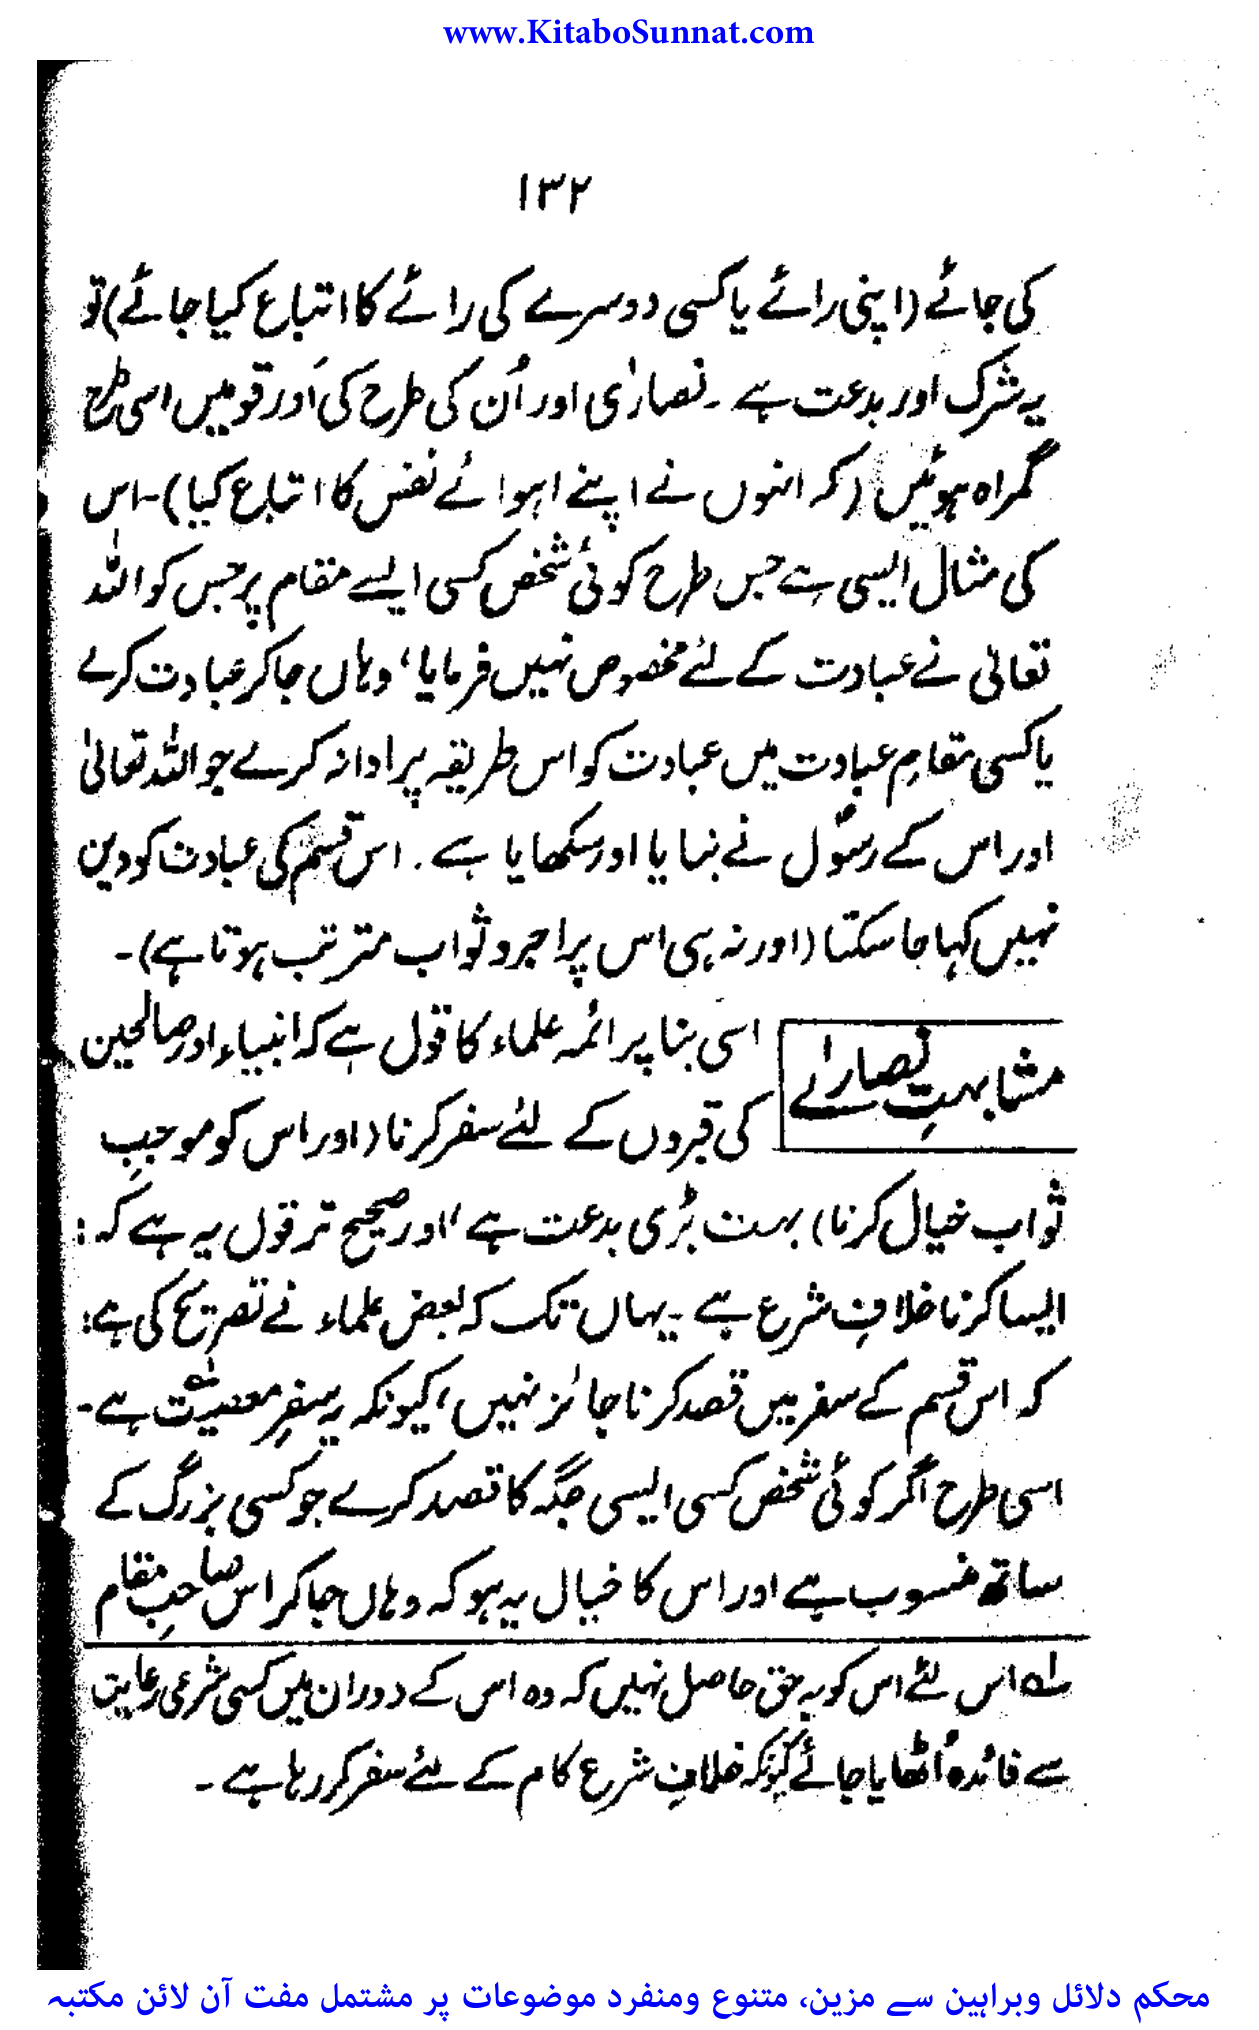 www.KitaboSunnat.com
۱۳۲
کی جائے (اپنی رائے یا کسی دوسرے کی رائے کا اتباع کیا جائے) تو
یہ شرک اور بدعت ہے ۔ نصارٰی اور اُن کی طرح کی اَور قومیں اسی طرح
گمراہ ہوئیں (کہ انہوں نے اپنے اہوائے نفس کا اتباع کیا)۔ اس
کی مثال ایسی ہے جس طرح کوئی شخص کسی ایسے مقام پر جس کو اللہ
تعالیٰ نے عبادت کے لئے مخصوص نہیں فرمایا، وہاں جا کر عبادت کرے
یا کسی مقامِ عبادت میں عبادت کو اس طریقہ پر ادا نہ کرے جو اللہ تعالیٰ
اور اس کے رسولؐ نے بتایا اور سکھایا ہے ۔ اس قسم کی عبادت کو دین
نہیں کہا جا سکتا (اور نہ ہی اس پر اجر و ثواب مترتب ہوتا ہے) ۔
مشابہتِ نصاریٰ
اسی بنا پر ائمہ علماء کا قول ہے کہ انبیاء اور صالحین
کی قبروں کے لئے سفر کرنا (اور اس کو موجبِ
ثواب خیال کرنا) بہت بڑی بدعت ہے، اور صحیح تر قول یہ ہے کہ :
ایسا کرنا خلافِ شرع ہے ۔ یہاں تک کہ بعض علماء نے تصریح کی ہے :
کہ اس قسم کے سفر میں قصر کرنا جائز نہیں، کیونکہ یہ سفرِ معصیت ہے ۔
اسی طرح اگر کوئی شخص کسی ایسی جگہ کا قصد کرے جو کسی بزرگ کے
ساتھ منسوب ہے اور اس کا خیال یہ ہو کہ وہاں جا کر اس صاحبِ مقام
لہ اس لئے اس کو یہ حق حاصل نہیں کہ وہ اس کے دوران میں کسی شرعی رعایت
سے فائدہ اُٹھایا جائے کیونکہ خلافِ شرع کام کے لئے سفر کر رہا ہے ۔
محکم دلائل وبراہین سے مزین، متنوع ومنفرد موضوعات پر مشتمل مفت آن لائن مکتبہ